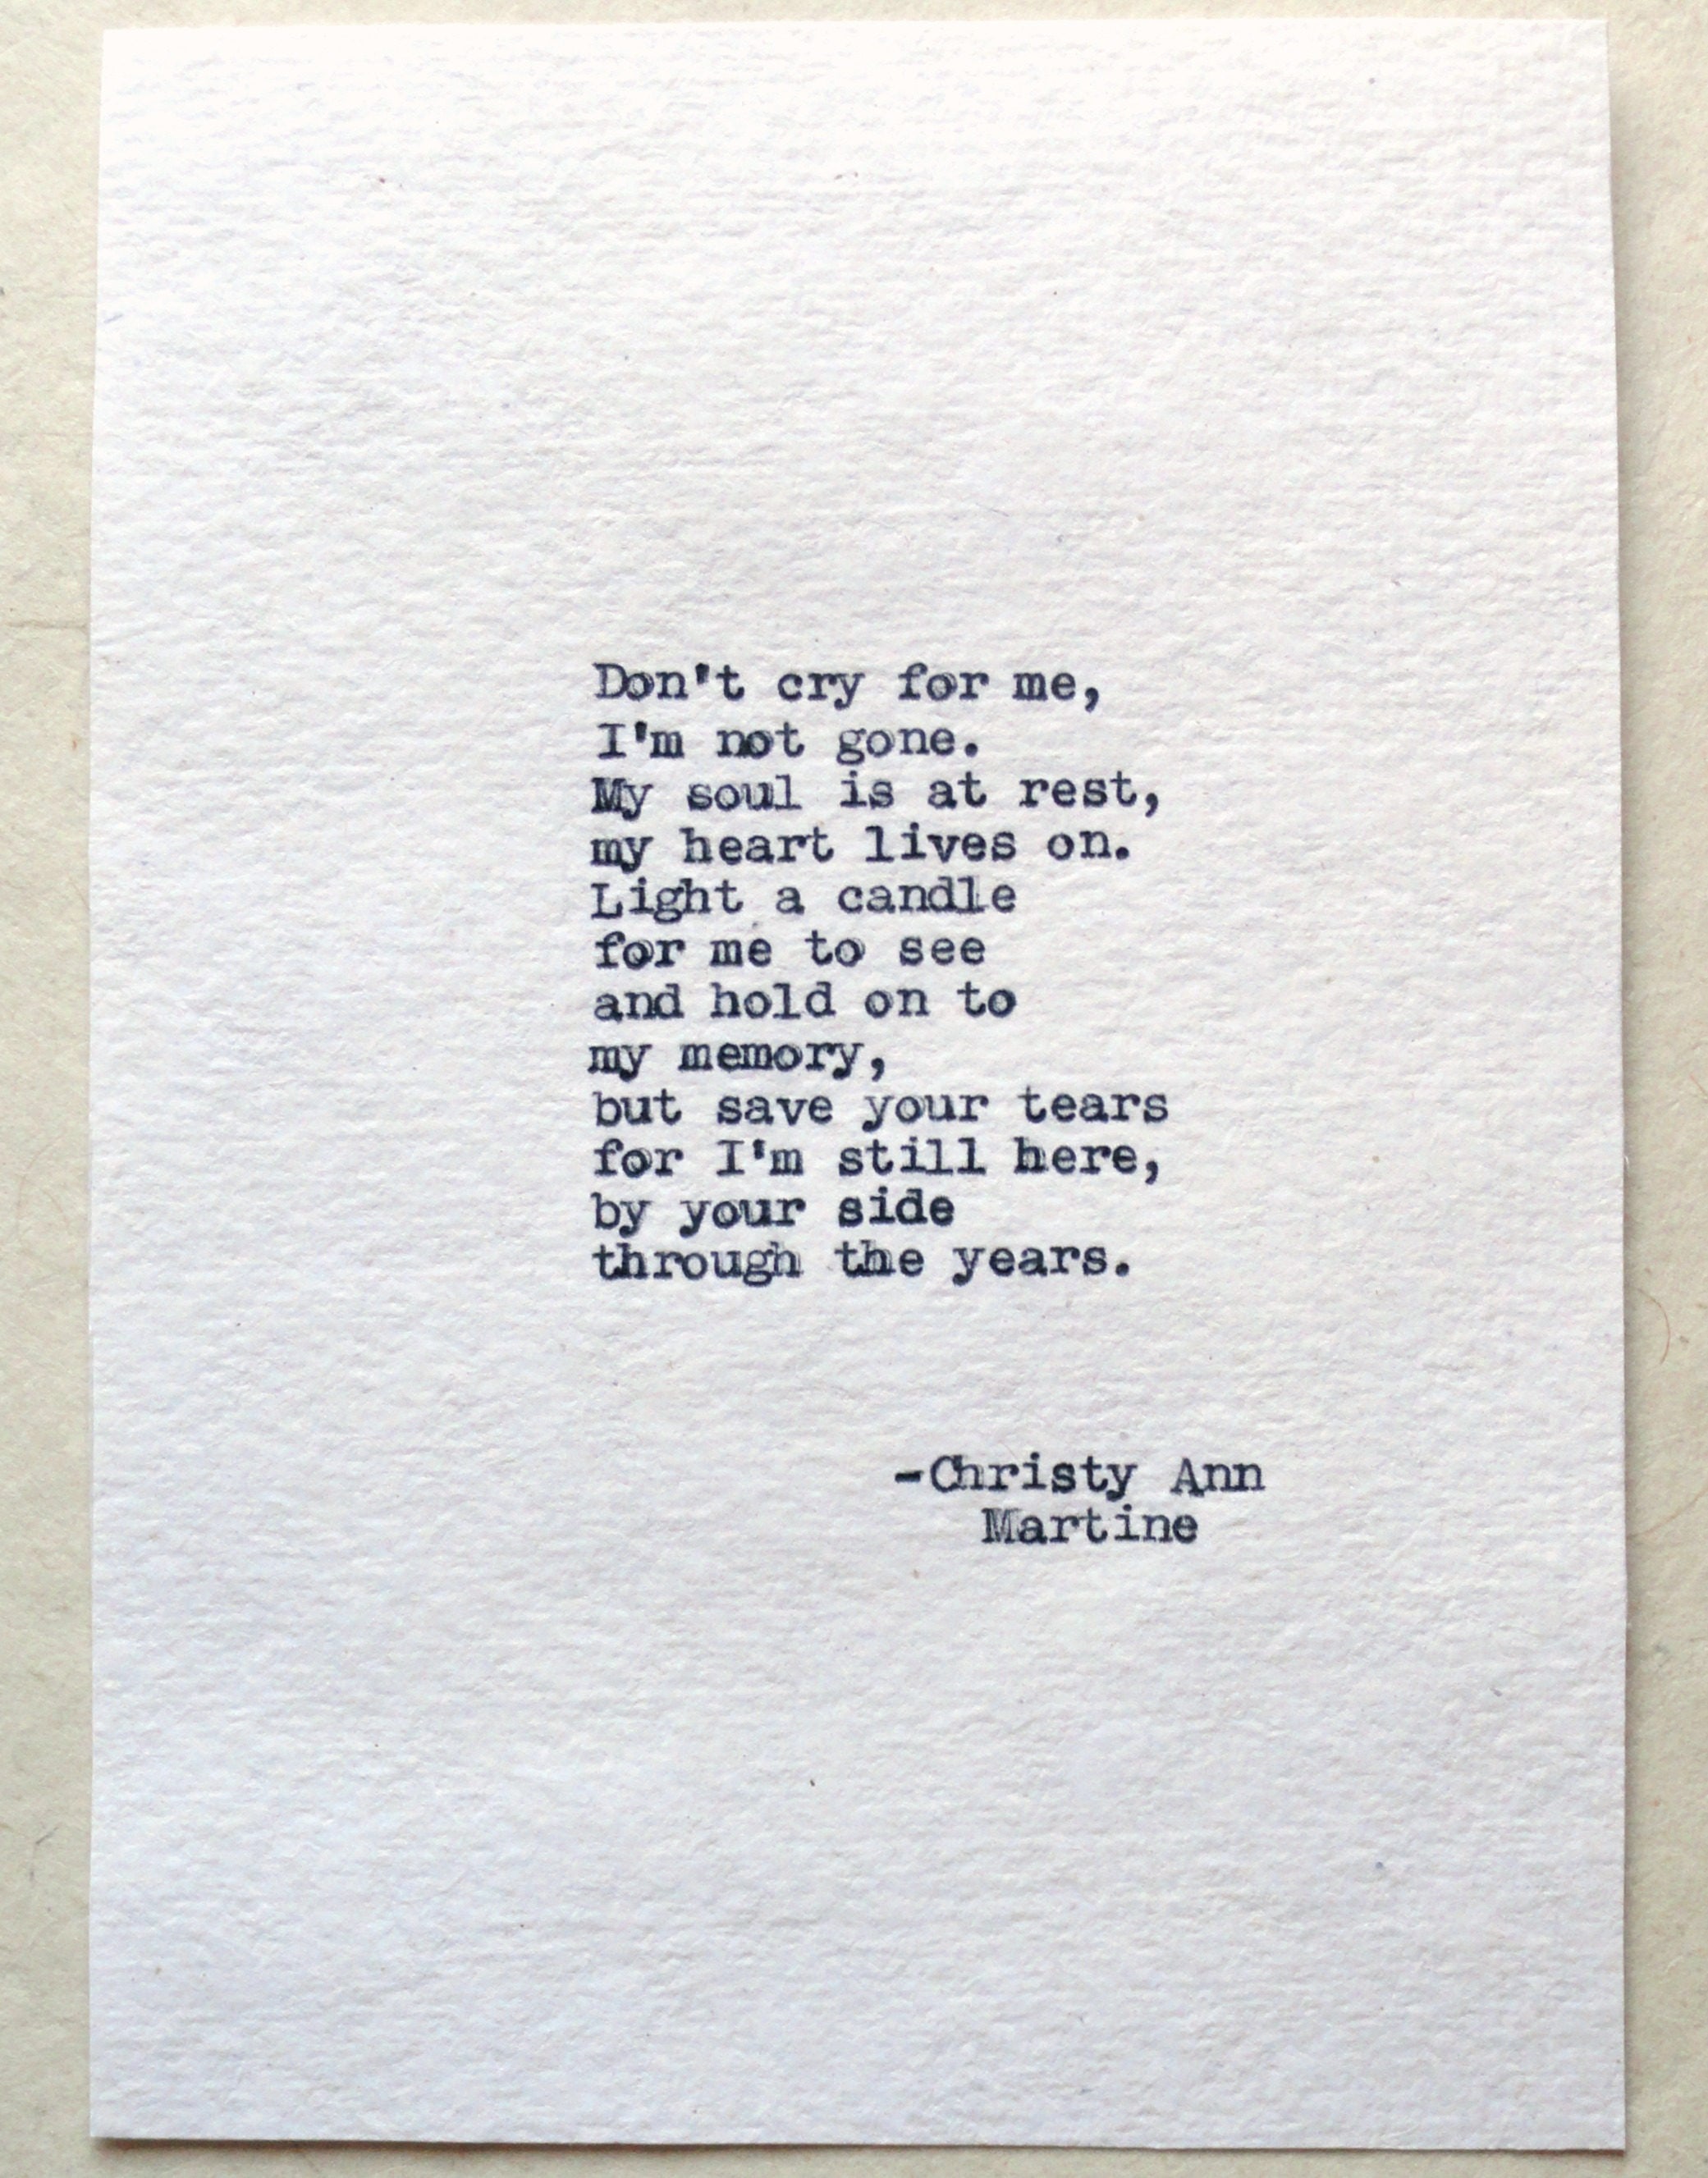 Don't cry for me,
I'm not gone.
My soul is at rest,
my heart lives on.
Light a candle
for me to see
and hold on to
my memory,
but save your tears
for I'm still here,
by your side
through the years.
-Christy Ann
Martine